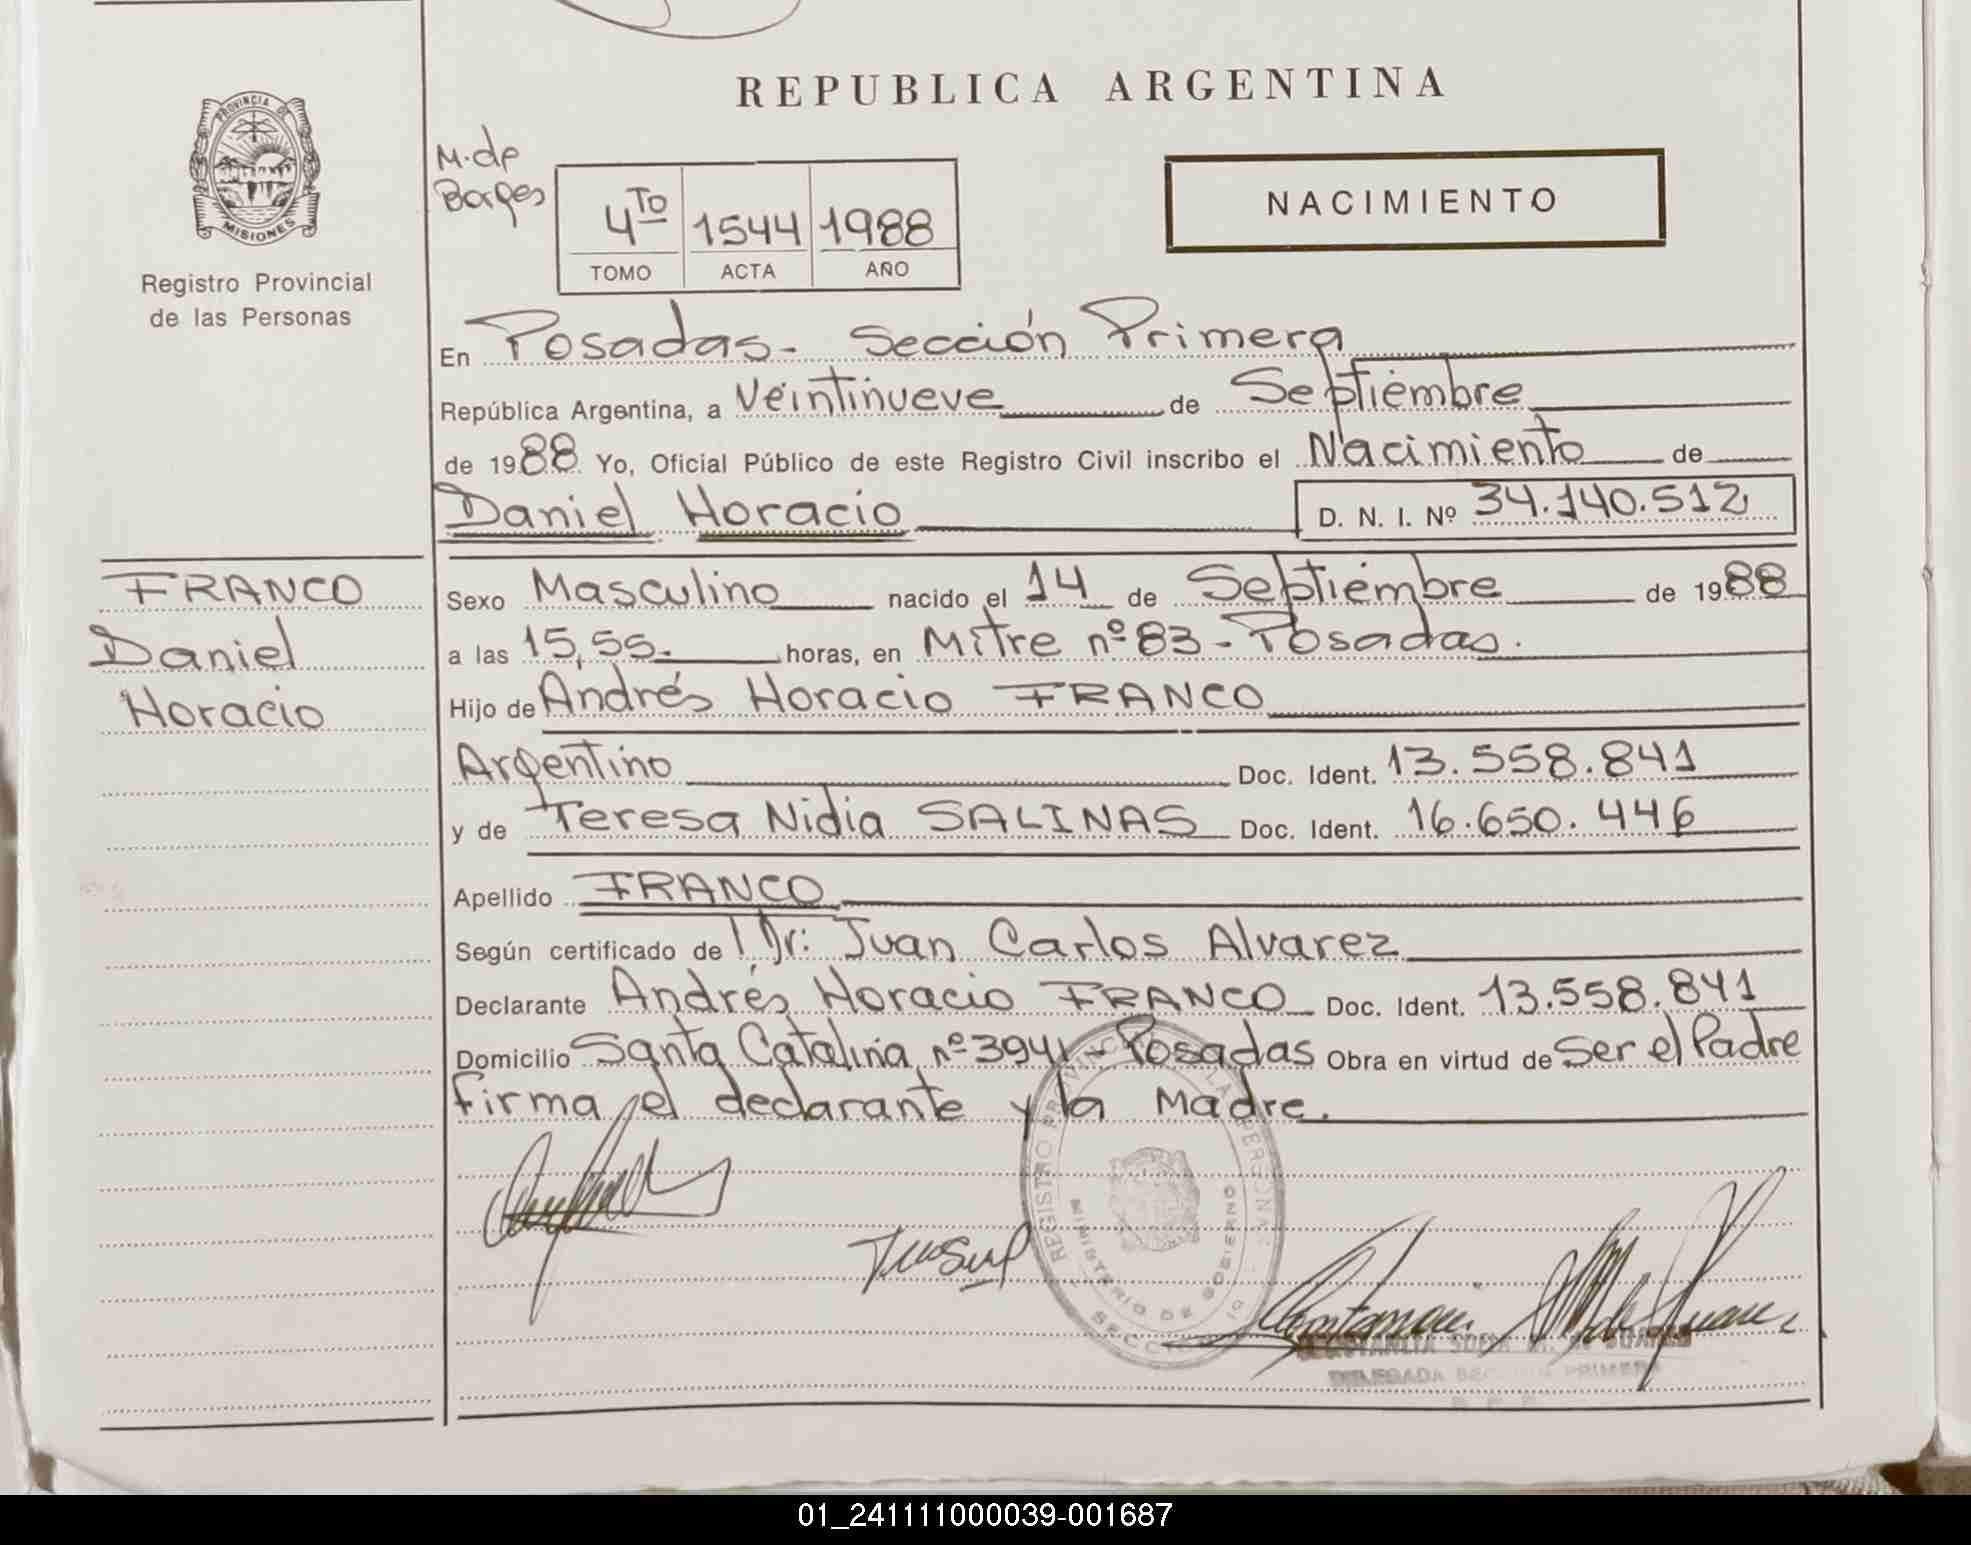 REPUBLICA ARGENTINA
PROVINCIA DE
MISIONES
Registro Provincial
de las Personas
M. de
Borges
4TO 1544 1988
TOMO ACTA AÑO
NACIMIENTO
En Posadas - Sección Primera
República Argentina, a Veintinueve de Septiembre
de 1988 Yo, Oficial Público de este Registro Civil inscribo el Nacimiento de
Daniel Horacio D. N. I. Nº 34.140.512
FRANCO
Daniel
Horacio
Sexo Masculino nacido el 14 de Septiembre de 1988
a las 15,55. horas, en Mitre nº 83 - Posadas.
Hijo de Andrés Horacio FRANCO
Argentino Doc. Ident. 13.558.841
y de Teresa Nidia SALINAS Doc. Ident. 16.650.446
Apellido FRANCO
Según certificado de Dr: Juan Carlos Alvarez
Declarante Andrés Horacio FRANCO Doc. Ident. 13.558.841
Domicilio Santa Catalina nº 3941 - Posadas Obra en virtud de Ser el Padre
firma el declarante y la Madre.
REGISTRO PROVINCIAL LA PERSONA
MINISTERIO DE GOBIERNO
SECCIO
DELEGADA SECCION PRIMERA
01_241111000039-001687